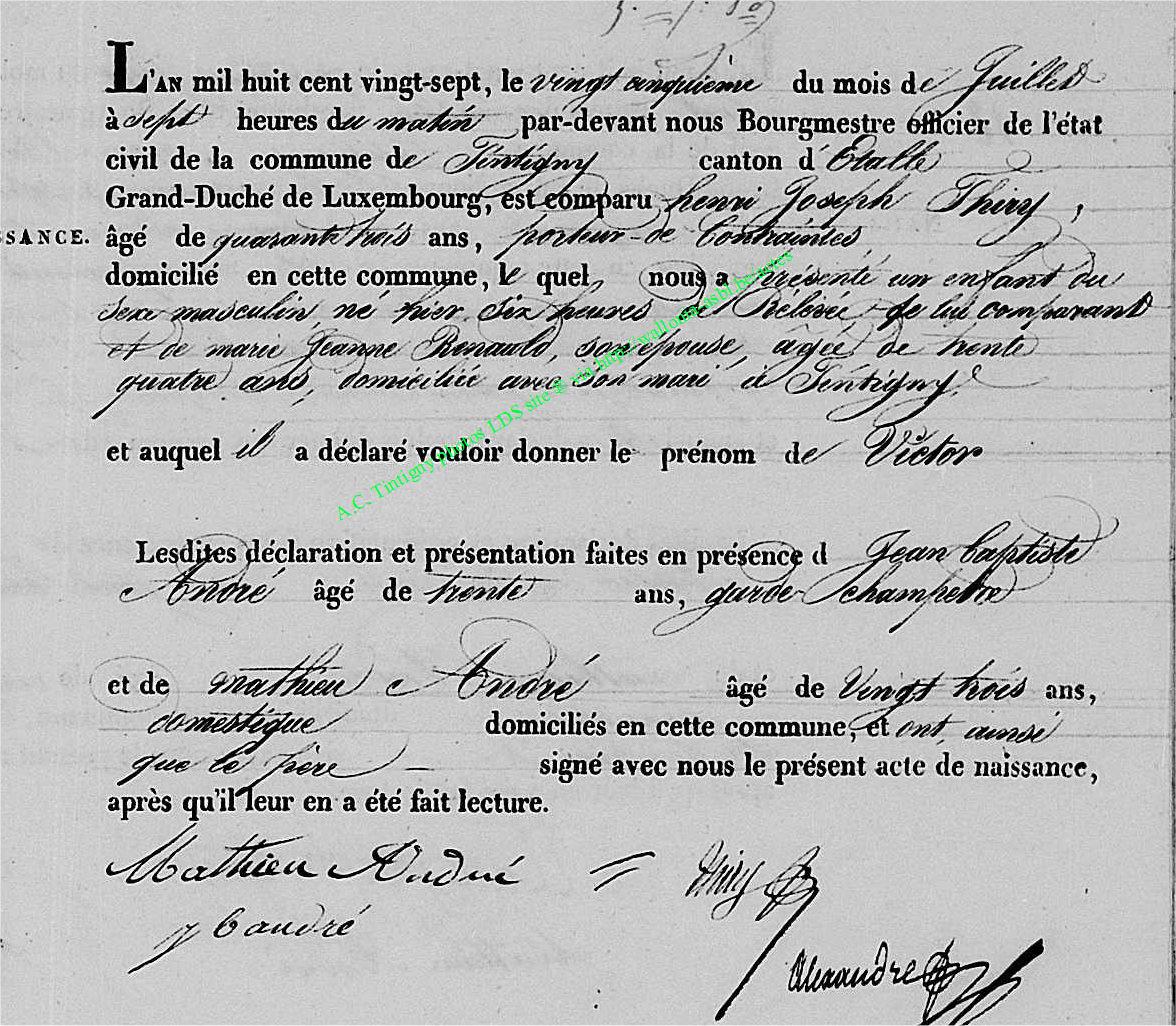 L'AN mil huit cent vingt-sept, le vingt cinquième du mois de Juillet
à sept heures du matin par-devant nous Bourgmestre officier de l'état
civil de la commune de Tintigny canton d'Etalle
Grand-Duché de Luxembourg, est comparu henri Joseph Thiry,
SSANCE. âgé de quarante trois ans, porteur de Contraintes
domicilié en cette commune, le quel nous a présenté un enfant du
sexe masculin, né hier six heures de Rélévée de lui comparant
et de marie Jeanne Renauld, son épouse, agée de trente
quatre ans, domiciliée avec son mari à Tintigny
et auquel il a déclaré vouloir donner le prénom de Victor
A.C. Tintigny photos LDS site @ via http://wallonia.asbl.be/actes
Lesdites déclaration et présentation faites en présence d Jean baptiste
André âgé de trente ans, garde champetre
et de mathieu André âgé de Vingt trois ans,
domestique domiciliés en cette commune, et ont ainsi
que le père signé avec nous le présent acte de naissance,
après qu'il leur en a été fait lecture.
Mathieu André = Thiry
J b andré
Alexandre